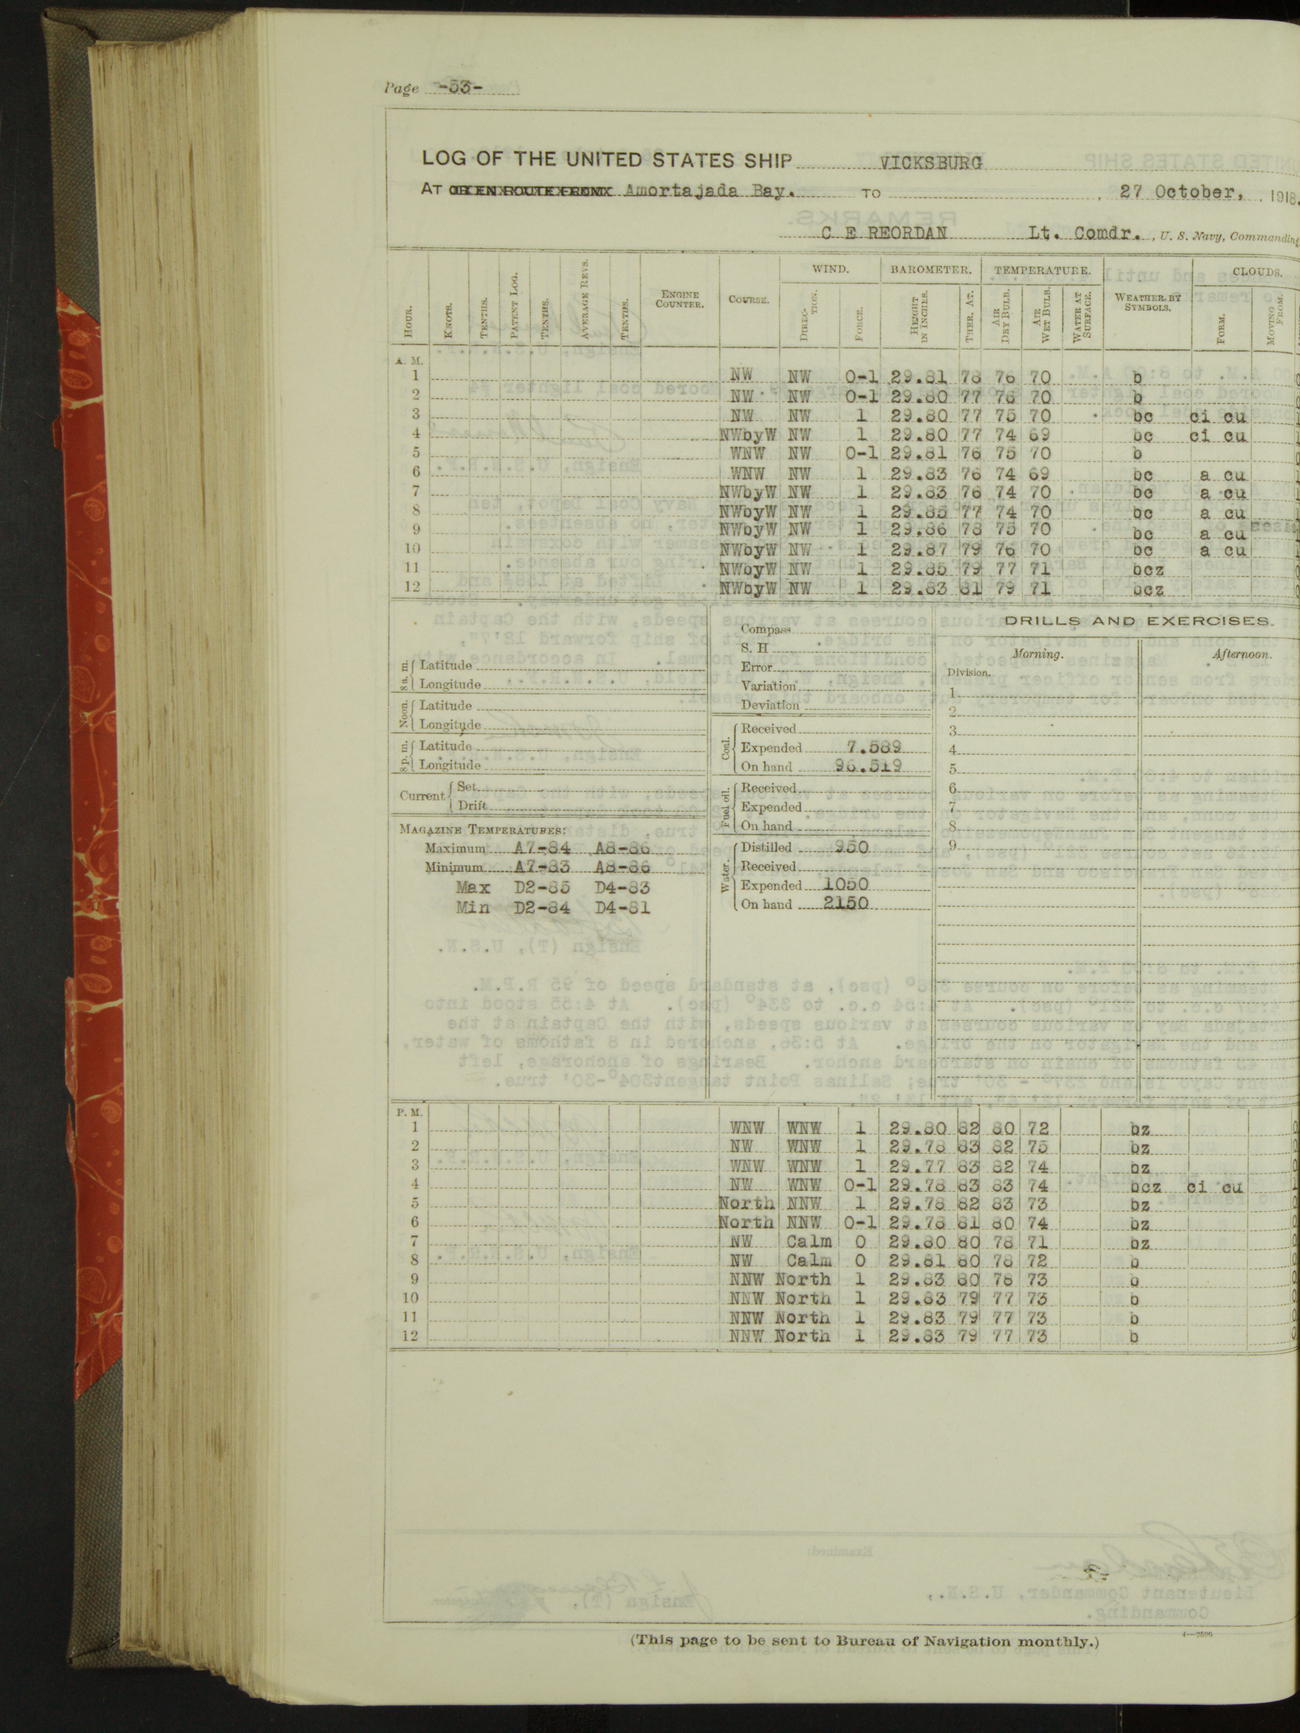 Page -53-
LOG OF THE UNITED STATES SHIP VICKSBURG
AT Amortajada Bay. TO , 27 October, , 1918.
C E REORDAN Lt. Comdr. , U. S. Navy, Commanding
HOUR. KNOTS. TENTHS. PATENT LOG. TENTHS. AVERAGE REVS. TENTHS. ENGINE COUNTER. COURSE. WIND. DIRECTION. FORCE. BAROMETER. HEIGHT IN INCHES. THER. AT. TEMPERATURE. AIR DRY BULB. AIR WET BULB. WATER AT SURFACE. WEATHER BY SYMBOLS. CLOUDS. FORM. MOVING FROM.
A. M.
1 NW NW 0-1 29.81 78 76 70 b
2 NW NW 0-1 29.80 77 76 70 b
3 NW NW 1 29.80 77 75 70 bc ci cu
4 NWbyW NW 1 29.80 77 74 69 bc ci cu
5 WNW NW 0-1 29.81 76 75 70 b
6 WNW NW 1 29.83 76 74 69 bc a cu
7 NWbyW NW 1 29.83 76 74 70 bc a cu
8 NWbyW NW 1 29.85 77 74 70 bc a cu
9 NWbyW NW 1 29.86 78 75 70 bc a cu
10 NWbyW NW 1 29.87 79 76 70 bc a cu
11 NWbyW NW 1 29.85 79 77 71 bcz
12 NWbyW NW 1 29.83 81 79 71 bcz
8 a. m. Latitude
Longitude
Noon. Latitude
Longitude
8 p. m. Latitude
Longitude
Current Set
Drift
MAGAZINE TEMPERATURES:
Maximum A7-84 A8-86
Minimum A7-83 A8-86
Max D2-85 D4-83
Min D2-84 D4-81
Compass
S. H
Error
Variation
Deviation
Coal. Received
Expended 7.589
On hand 96.519
Fuel oil. Received
Expended
On hand
Water. Distilled 950
Received
Expended 1050
On hand 2150
DRILLS AND EXERCISES.
Morning. Afternoon.
Division.
1
2
3
4
5
6
7
8
9
P. M.
1 WNW WNW 1 29.80 82 80 72 bz
2 NW WNW 1 29.78 83 82 75 bz
3 WNW WNW 1 29.77 83 82 74 bz
4 NW WNW 0-1 29.78 83 83 74 bcz ci cu
5 North NNW 1 29.78 82 83 73 bz
6 North NNW 0-1 29.78 81 80 74 bz
7 NW Calm 0 29.80 80 78 71 bz
8 NW Calm 0 29.81 80 78 72 b
9 NNW North 1 29.83 80 78 73 b
10 NNW North 1 29.83 79 77 73 b
11 NNW North 1 29.83 79 77 73 b
12 NNW North 1 29.83 79 77 73 b
(This page to be sent to Bureau of Navigation monthly.)